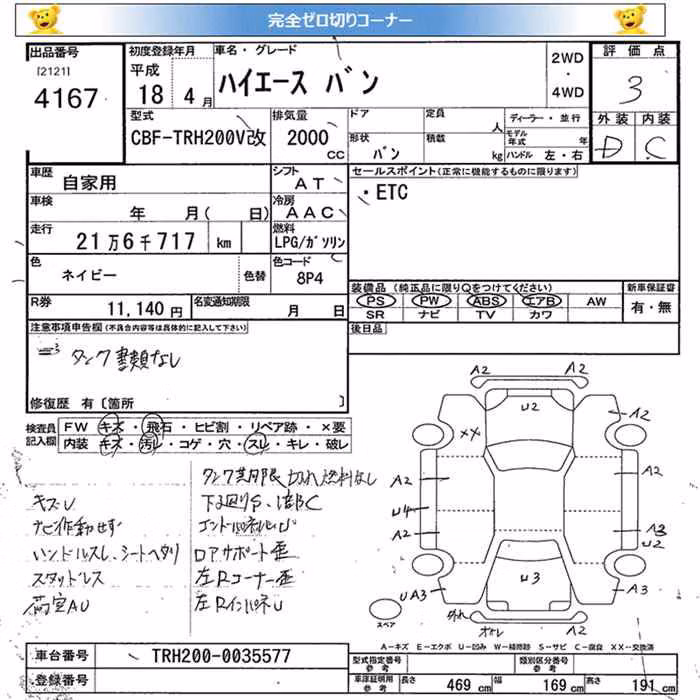 完全ゼロ切りコーナー
出品番号
[2121]
4167
初度登録年月
平成
18 4月
車名・グレード
ハイエース バン
2WD
・
4WD
評価点
3
型式
CBF-TRH200V改
排気量
2000
CC
ドア
定員
人
ディーラー・並行
形状
バン
積載
kg
モデル年式
年
ハンドル 左・右
外装 内装
D C
車歴
自家用
シフト
AT
車検
年 月( 日)
冷房
AAC
走行
21万6千717 km
燃料
LPG/ガソリン
色
ネイビー
色替
色コード
8P4
R券
11,140円
名変通知期限
月 日
セールスポイント(正常に機能するものに限ります)
・ETC
装備品 (純正品に限りOをつけてください)
PS PW ABS エアB AW
SR ナビ TV カワ
新車保証書
有・無
後日品
注意事項申告欄(不具合内容等は具体的に記入して下さい)
タンク書類なし
修復歴 有〔箇所 〕
検査員記入欄
FW キズ・飛石・ヒビ割・リペア跡・×要
内装 キズ・汚レ・コゲ・穴・スレ・キレ・破レ
キズU
ナビ作動せず
ハンドルスレ、シートヘタリ
スタッドレス
荷室AU
タンク期限切れ燃料なし
下廻りS・C
ロアサポート歪
左Rコーナー歪
左RインパネU
A2
A2
U2
A2
XX
A2
A2
U4
A2
A3
U2
U3
UA3
A3
スペア
外れ
A-キズ E-エクボ U-凹み W-補修跡 S-サビ C-腐食 XX-交換済
車台番号
TRH200-0035577
登録番号
型式指定番号
参考
類別区分番号
参考
車庫証明用
参考
長さ 469 cm
幅 169 cm
高さ 191 cm